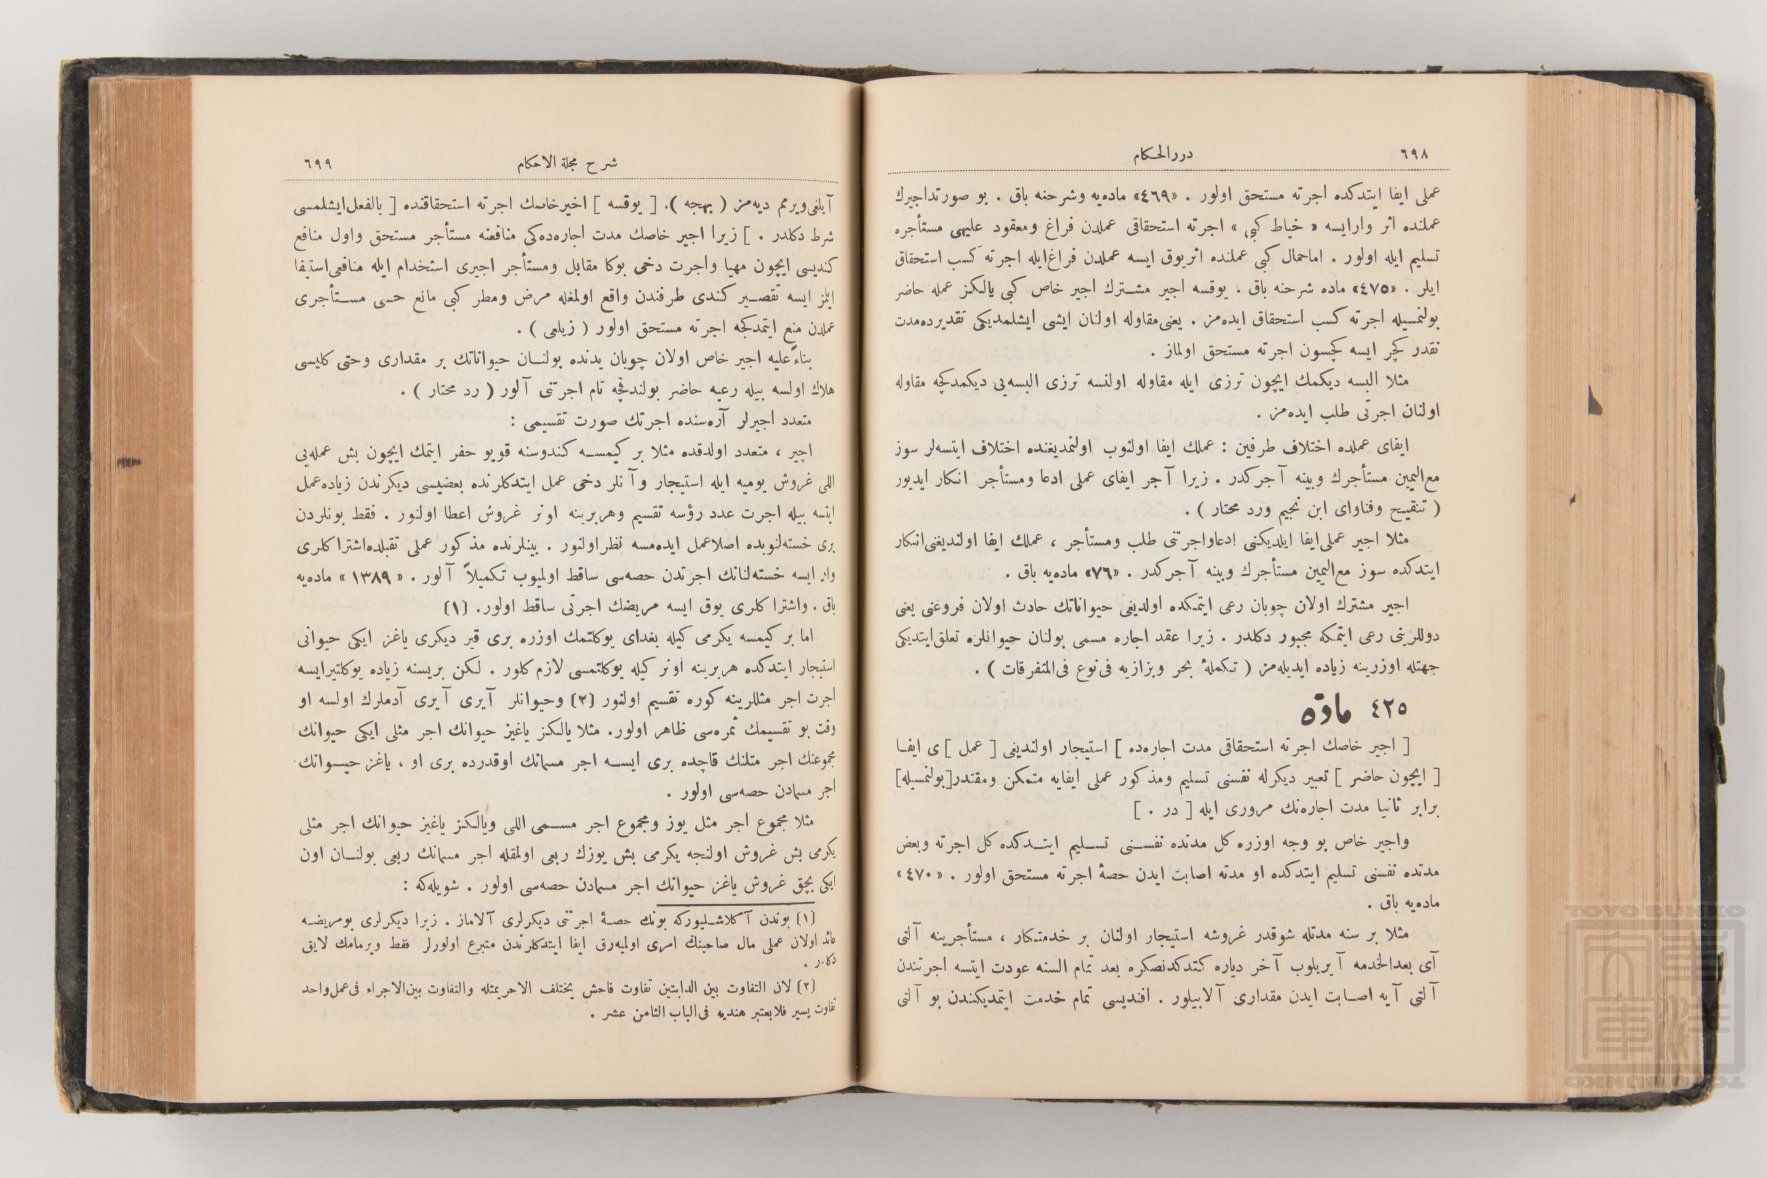 ٦٩٨
دررالحكام
عملى ايفا ايتدكده اجرته مستحق اولور . «٤٦٩» ماده‌يه وشرحنه باق . بو صورتداجيرك
عملنده اثر وارايسه « خياط كبى » اجرته استحقاقى عملدن فراغ ومعقود عليهى مستأجره
تسليم ايله اولور . اماحمال كبى عملنده اثريوق ايسه عملدن فراغ‌ايله اجرته كسب استحقاق
ايلر . «٤٧٥» ماده شرحنه باق . يوقسه اجير مشترك اجير خاص كبى يالكز عمله حاضر
بولنمسيله اجرته كسب استحقاق ايده‌مز . يعنى‌مقاوله اولنان ايشى ايشلمديكى تقديرده‌مدت
نقدر كچر ايسه كچسون اجرته مستحق اولماز .
مثلا البسه ديكمك ايچون ترزى ايله مقاوله اولنسه ترزى البسه‌يى ديكمدكچه مقاوله
اولنان اجرتى طلب ايده‌مز .
ايفاى عملده اختلاف طرفين : عملك ايفا اولنوب اولنمديغنده اختلاف ايتسه‌لر سوز
مع‌اليمين مستأجرك وبينه آجركدر . زيرا آجر ايفاى عملى ادعا ومستأجر انكار ايديور
( تنقيح وفتاواى ابن نجيم ورد محتار ) .
مثلا اجير عملى‌ايفا ايلديكنى ادعاواجرتنى طلب ومستأجر ، عملك ايفا اولنديغنى‌انكار
ايتدكده سوز مع‌اليمين مستأجرك وبينه آجركدر . «٧٦» ماده‌يه باق .
اجير مشترك اولان چوبان رعى ايتمكده اولديغى حيواناتك حادث اولان فروعنى يعنى
دوللرينى رعى ايتمكه مجبور دكلدر . زيرا عقد اجاره مسمى بولنان حيوانلره تعلق‌ايتديكى
جهتله اوزرينه زياده ايديله‌مز ( تكملهٔ بحر وبزازيه فى‌نوع فى‌المتفرقات ) .
٤٢٥ مادّه
[ اجير خاصك اجرته استحقاقى مدت اجاره‌ده ] استيجار اولنديغى [ عمل ] ى ايفا
[ ايچون حاضر ] تعبير ديكرله نفسنى تسليم ومذكور عملى ايفايه متمكن ومقتدر[بولنمسيله]
برابر ثانيا مدت اجاره‌نك مرورى ايله [ در . ]
واجير خاص بو وجه اوزره كل مدتده نفسنى تسليم ايتدكده كل اجرته وبعض
مدتده نفسنى تسليم ايتدكده او مدته اصابت ايدن حصهٔ اجرته مستحق اولور . «٤٧٠»
ماده‌يه باق .
مثلا بر سنه مدتله شوقدر غروشه استيجار اولنان بر خدمتكار ، مستأجرينه آلتى
آى بعدالخدمه آيريلوب آخر دياره كتدكدنصكره بعد تمام السنه عودت ايتسه اجرتندن
آلتى آيه اصابت ايدن مقدارى آلابيلور . افنديسى تمام خدمت ايتمديكندن بو آلتى
٦٩٩
شرح مجلة الاحكام
آيلغى‌ويرمم ديه‌مز ( بهجه ). [ يوقسه ] اخيرخاصك اجرته استحقاقنده [ بالفعل‌ايشلمسى
شرط دكلدر . ] زيرا اجير خاصك مدت اجاره‌ده‌كى منافعنه مستأجر مستحق واول منافع
كنديسى ايچون مهيا واجرت دخى بوكا مقابل ومستأجر اجيرى استخدام ايله منافعى‌استيفا
ايلمز ايسه تقصير كندى طرفندن واقع اولمغله مرض ومطر كبى مانع حسى مستأجرى
عملدن منع ايتمدكجه اجرته مستحق اولور ( زيلعى ) .
بناءً‌عليه اجير خاص اولان چوبان يدنده بولنان حيواناتك بر مقدارى وحتى كليسى
هلاك اولسه بيله رعيه حاضر بولندقچه تام اجرتنى آلور ( رد محتار ) .
متعدد اجيرلر آره‌سنده اجرتك صورت تقسيمى :
اجير ، متعدد اولدقده مثلا بر كيمسه كندوسنه قويو حفر ايتمك ايچون بش عمله‌يى
اللى غروش يوميه ايله استيجار وآنلر دخى عمل ايتدكلرنده بعضيسى ديكرندن زياده‌عمل
ايتسه بيله اجرت عدد رؤسه تقسيم وهربرينه اونر غروش اعطا اولنور . فقط بونلردن
برى خسته‌لنوبده اصلاعمل ايده‌مسه نظراولنور . بينلرنده مذكور عملى تقبلده‌اشتراكلرى
وار ايسه خسته‌لنانك اجرتدن حصه‌سى ساقط اولميوب تكميلاً آلور . «١٣٨٩» ماده‌يه
باق . واشتراكلرى يوق ايسه مريضك اجرتى ساقط اولور. (١)
اما بر كيمسه يكرمى كيله بغداى يوكلتمك اوزره برى قير ديكرى ياغز ايكى حيوانى
استيجار ايتدكده هربرينه اونر كيله يوكلتمسى لازم كلور . لكن بريسنه زياده يوكلتيرايسه
اجرت اجر مثللرينه كوره تقسيم اولنور (٢) وحيوانلر آيرى آيرى آدملرك اولسه او
وقت بو تقسيمك ثمره‌سى ظاهر اولور. مثلا يالكز ياغيز حيوانك اجر مثلى ايكى حيوانك
مجموعنك اجر مثلنك قاچده برى ايسه اجر مسمانك اوقدرده برى او ، ياغز حيوانك
اجر مسمادن حصه‌سى اولور .
مثلا مجموع اجر مثل يوز ومجموع اجر مسمى اللى ويالكز ياغيز حيوانك اجر مثلى
يكرمى بش غروش اولنجه يكرمى بش يوزك ربعى اولمقله اجر مسمانك ربعى بولنان اون
ايكى بچق غروش ياغز حيوانك اجر مسمادن حصه‌سى اولور . شويله‌كه :
(١) بوندن آكلاشليوركه بونك حصهٔ اجرتنى ديكرلرى آلاماز . زيرا ديكرلرى بومريضه
عائد اولان عملى مال صاحبنك امرى اولميه‌رق ايفا ايتدكلرندن متبرع اولورلر فقط ويرمامك لايق
دكلدر .
(٢) لان التفاوت بين الدابتين تفاوت فاحش يختلف الاجربمثله والتفاوت بين‌الاجراء فى‌عمل‌واحد
تفاوت يسير فلايعتبر هنديه فى‌الباب الثامن عشر .
TOYO BUNKO
東洋文庫
TOYO BUNKO